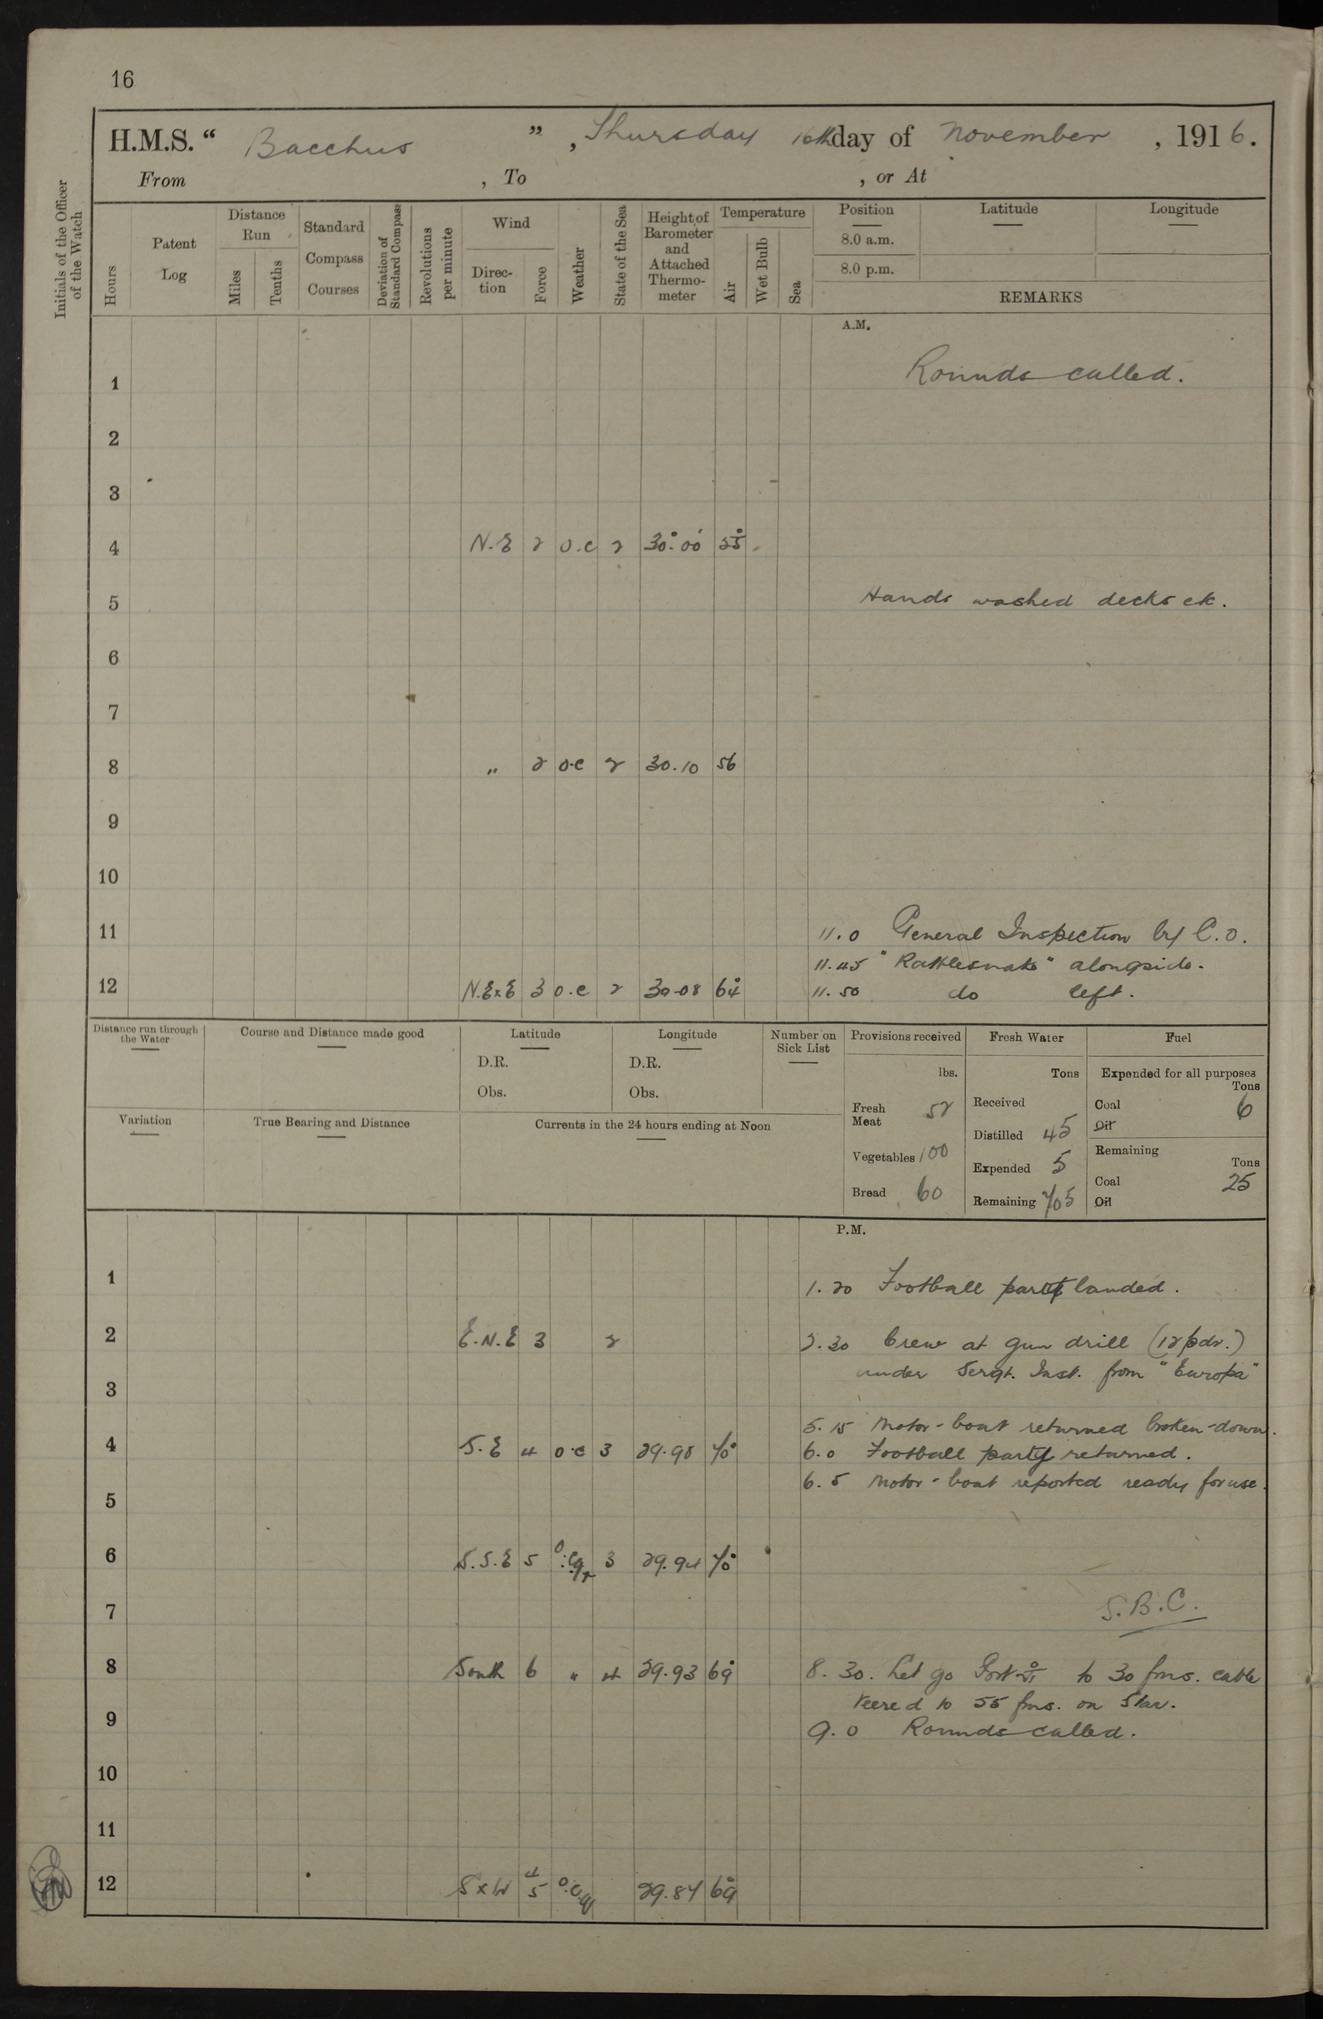 16
H.M.S. “ Bacchus ”, Thursday 16th day of November, 1916.
From , To , or At
Initials of the Officer of the Watch
Hours
Patent Log
Distance Run
Miles
Tenths
Standard Compass Courses
Deviation of Standard Compass
Revolutions per minute
Wind
Direction
Force
Weather
State of the Sea
Height of Barometer and Attached Thermometer
Temperature
Air
Wet Bulb
Sea
Position
8.0 a.m.
8.0 p.m.
Latitude
Longitude
REMARKS
A.M.
1 Rounds called.
2
3
4 N.E 2 o.c 2 30.00 55
5 Hands washed decks etc.
6
7
8 " 2 o.c 2 30.10 56
9
10
11 11.0 General Inspection by C.O.
11.45 "Rattlesnake" alongside.
12 N.ExE 3 o.c 2 30.08 64 11.50 do left.
Distance run through the Water
Course and Distance made good
Latitude
D.R.
Obs.
Longitude
D.R.
Obs.
Number on Sick List
Variation
True Bearing and Distance
Currents in the 24 hours ending at Noon
Provisions received
lbs.
Fresh Meat 52
Vegetables 100
Bread 60
Fresh Water
Tons
Received
Distilled 45
Expended 5
Remaining 705
Fuel
Expended for all purposes
Tons
Coal 6
Oil
Remaining
Tons
Coal 25
Oil
P.M.
1 1.20 Football party landed.
2 E.N.E 3 2 2.30 Crew at gun drill (12 pdr.)
under Sergt. Inst. from "Europa"
3
5.15 Motor-boat returned broken-down.
4 S.E 4 o.c 3 29.98 70 6.0 Football party returned.
6.5 Motor-boat reported ready for use.
5
6 S.S.E 5 3 29.94 70
7 S.B.C.
8 South 6 " 4 29.93 69 8.30. Let go Port to 30 fms. cable
Veered to 55 fms. on Star.
9 9.0 Rounds called.
10
11
12 SxW 4 5 29.84 69